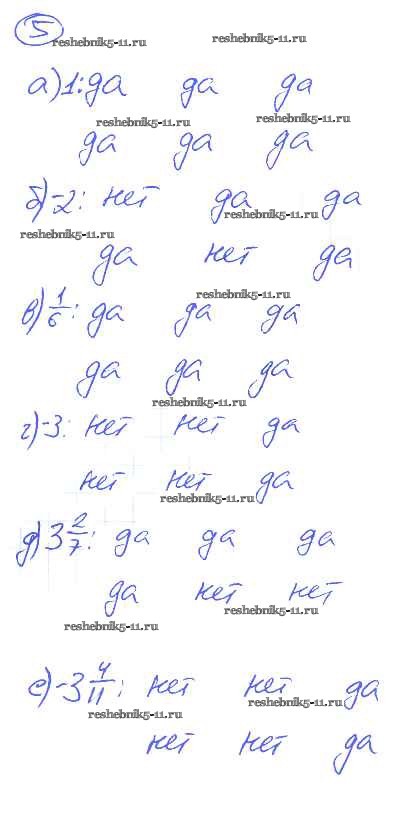 5
reshebnik5-11.ru reshebnik5-11.ru
а) 1: да да да
reshebnik5-11.ru reshebnik5-11.ru
да да да
б) -2: нет да да
reshebnik5-11.ru
reshebnik5-11.ru
да нет да
reshebnik5-11.ru
в) 1/6: да да да
да да да
reshebnik5-11.ru
г) -3: нет нет да
нет нет да
reshebnik5-11.ru
д) 3 2/7: да да да
да нет нет
reshebnik5-11.ru
reshebnik5-11.ru
е) -3 4/11: нет нет да
reshebnik5-11.ru
reshebnik5-11.ru
нет нет да